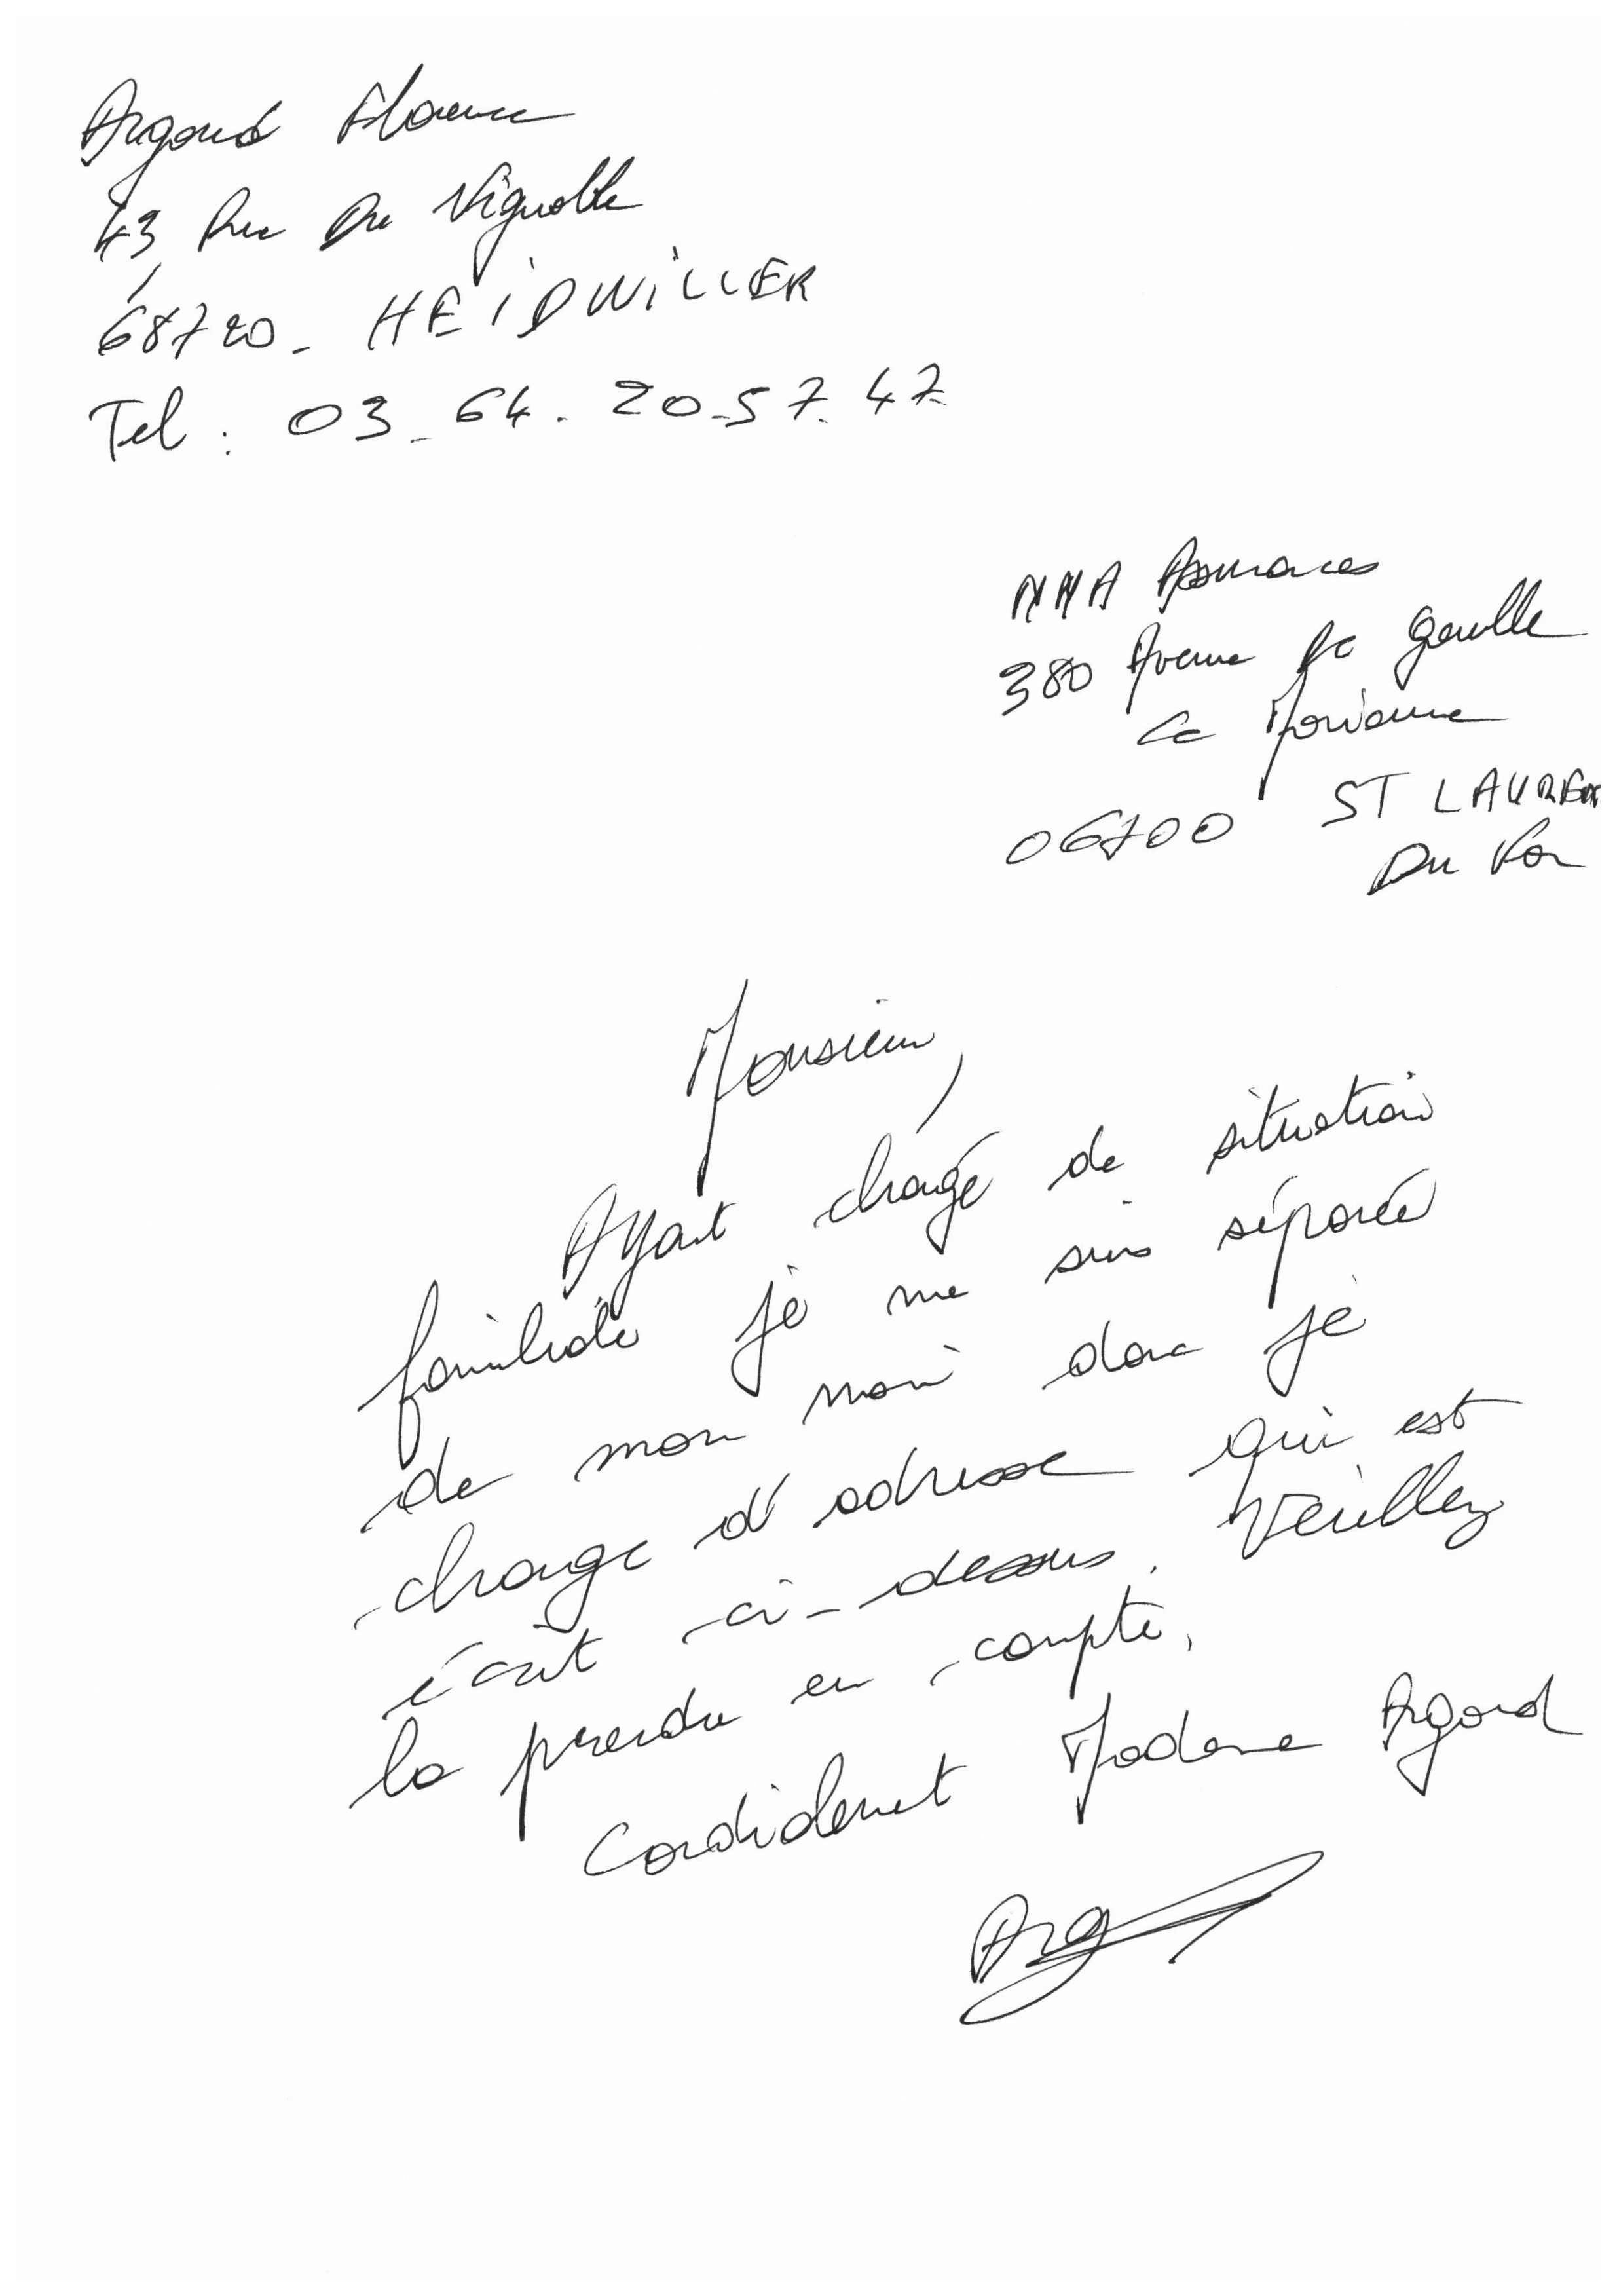 Argoud Florence
43 Rue Du Vignoble
68720 - HEIDWILLER
Tel : 03_64.20.57.47
MMA Assurances
380 Avenue De Gaulle
Le Marianne
06700 ST LAUREN
Du Var
Monsieur,
Ayant changé de situation
familiale je me suis séparée
de mon mari donc je
change d'adresse qui est
écrit ci-dessus. Veuillez
la prendre en compte.
Cordialement Madame Argoud